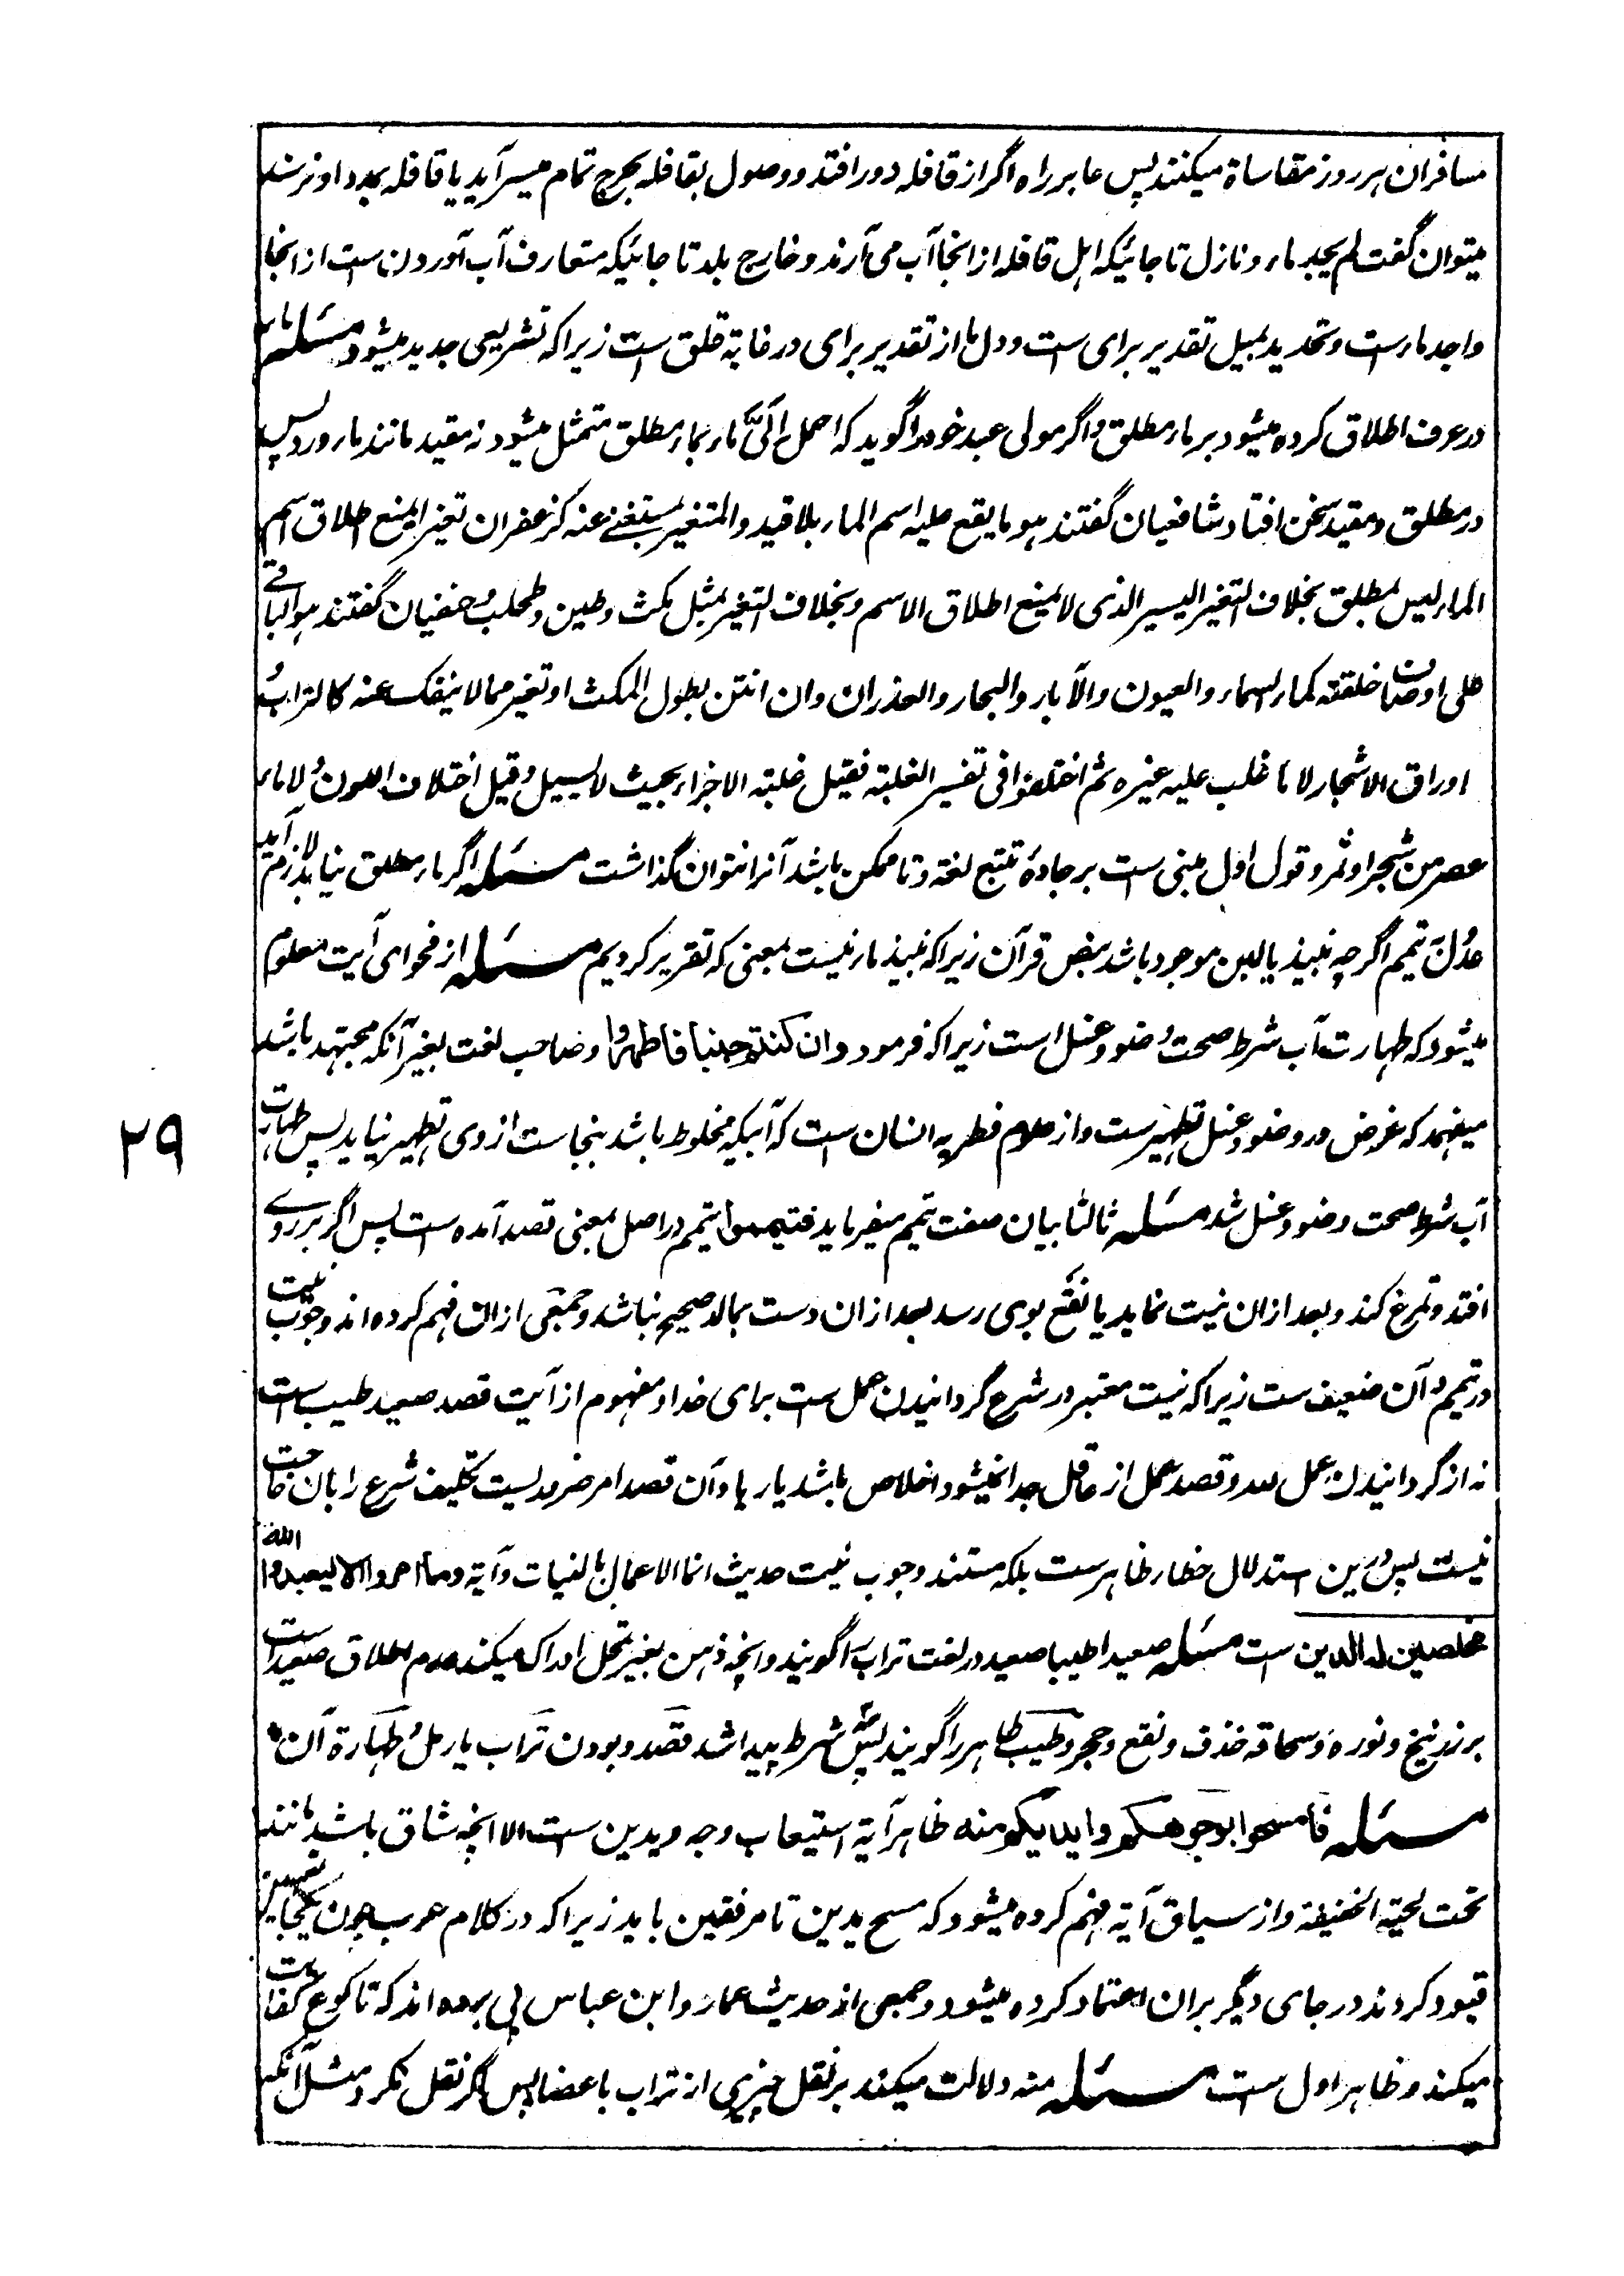 مسافران هر روز مقاساة میکنند پس عابر راه اگر از قافله دور افتد و وصول بقافله بحرج تمام میسر آید یا قافله بمدد او نرسند
میتوان گفت لم یجد ماء و نازل تا جائیکه اهل قافله از انجا آب می آرند و خارج بلد تا جائیکه متعارف آب آوردن ست از انجا
واجد ماء ست و تحدید بمیل تقدیر برای ست و دل ما از تقدیر برای در غایة قلق ست زیرا که تشریعی جدید میشود مسئله ماء
در عرف اطلاق کرده میشود بر ماء مطلق و اگر مولی عبد خود را گوید که احمل الیّ ماء بماء مطلق متمثل میشود نه مقید مانند ماء ورد پس
در مطلق و مقید سخن افتاد شافعیان گفتند هو ما یقع علیه اسم الماء بلا قید والمتغیر بمستغنی عنه کزعفران تغیرا یمنع اطلاق اسم
الماء لیس بمطلق بخلاف التغیر الیسیر الذی لا یمنع اطلاق الاسم وبخلاف التغیر بمثل مکث و طین و طحلب و حنفیان گفتند هو الباقی
علی اوصاف خلقته کماء السماء والعیون والآبار والبحار والغدران وان انتن بطول المکث او تغیر مما لا ینفک عنه کالتراب و
اوراق الاشجار لا ما غلب علیه غیره ثم اختلفوا فی تفسیر الغلبة فقیل غلبة الاجزاء بحیث لا یسیل وقیل اختلاف اللون و لا ماء
عصر من شجر او ثمر و قول اول مبنی ست بر جادۀ تتبع لغة و تا ممکن باشد آنرا نتوان گذاشت مسئله اگر ماء مطلق نیابد لازم آید
عدل تیمم اگرچه نبیذ یا لبن موجود باشد بنص قرآن زیرا که نبیذ ماء نیست بمعنی که تقریر کردیم مسئله از فحوای آیت معلوم
میشود که طهارت آب شرط صحت وضو و غسل است زیرا که فرمود وان کنتم جنبا فاطهروا و صاحب لغت بغیر آنکه مجتهد باشد
میفهمد که غرض در وضو و غسل تطهیرست و از علوم فطریه انسان ست که آبیکه مخلوط باشد بنجاست از وی تطهیر نیاید پس طهارت
آب شرط صحت وضو و غسل شد مسئله ثالثا بیان صفت تیمم میفرماید فتیمموا تیمم در اصل بمعنی قصد آمده ست پس اگر بر روی
افتد و تمرغ کند و بعد ازان نیت نماید یا نقع بوی رسد بعد ازان دست بمالد صحیح نباشد و جمعی ازان فهم کرده اند وجوب نیت
در تیمم و آن ضعیف ست زیرا که نیت معتبر در شرع گردانیدن عمل ست برای خدا و مفهوم از آیت قصد صعید طیب ست
نه از گردانیدن عمل لله و قصد عمل از عاقل جدا نمیشود اخلاص باشد یا ریا و آن قصد امر ضروریست تکلیف شرع را بان حاجت
نیست پس درین استدلال خطاء ظاهرست بلکه مستند وجوب نیت حدیث انما الاعمال بالنیات و آیة وما امروا الا لیعبدوا الله
مخلصین له الدین ست مسئله صعیدا طیبا صعید در لغت تراب را گویند و آنچه ذهن بغیر تمحل ادراک میکند عدم اطلاق صعیدست
بر زرنیخ و نوره و سحاقه خذف و نقع و حجر و طیب طاهر را گویند پس سه شرط پیدا شد قصد و بودن تراب یا رمل و طهارة آن
مسئله فامسحوا بوجوهکم وایدیکم منه ظاهر آیة استیعاب وجه و یدین ست الا آنچه شاق باشد مانند
تحت لحیة الخفیفة و از سیاق آیة فهم کرده میشود که مسح یدین تا مرفقین باید زیرا که در کلام عرب چون یکجا تعیین
قیود کردند در جای دیگر بران اعتماد کرده میشود و جمعی از حدیث عمار و ابن عباس پی برده اند که تا کوع کفایت
میکند و ظاهر اول ست مسئله منه دلالت میکند بر نقل چیزی از تراب باعضا پس اگر نقل نکرد مثل آنکه
۲۹